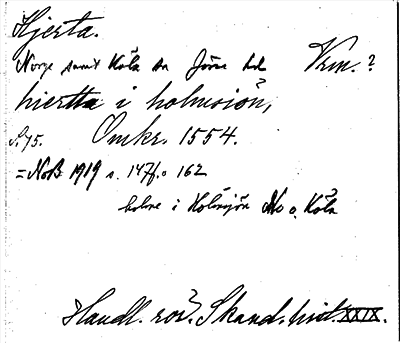 Hjerta.
Norge samt Köla sn Jösse hd Vrm.?
hiertta i holmsiön,
S. 75. Omkr. 1554.
= NoB 1919 s. 147 f. o 162
holme i Holmsjön No o. Köla
Handl. rör. Skand. hist. XXIX.